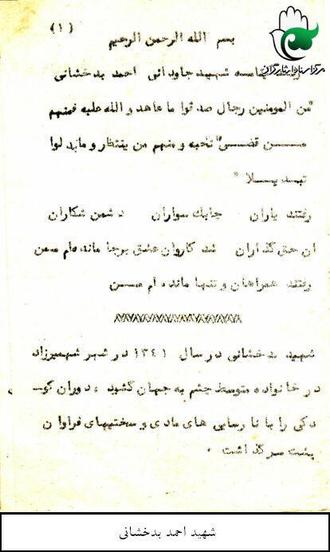 (١)
بسم الله الرحمن الرحیم
شهید جاودانی احمد بدخشانی
من المومنین رجال صدقوا ما عاهدو الله علیه فمنهم
مـــن قضـــی نحبه و منهم من ینتظر و مابدلوا
تبـد یـــلا "
رفتند یاران چابك سواران د شمن شکاران
ان حق گذاران شد کاروان عشق برجا مانده‌ام من
رفتند همراهان و تنها مانده ام مـــن
شهید بدخشانی در سال ١٣٤١ در شهر شهمیرزاد
در خانواده متوسط چشم به جهان گشود ، دوران کو
دکی را با نا رسایی های مادی و سختیهای فراوا ن
پشت سر گذ اشت ٠
شهید احمد بدخشانی